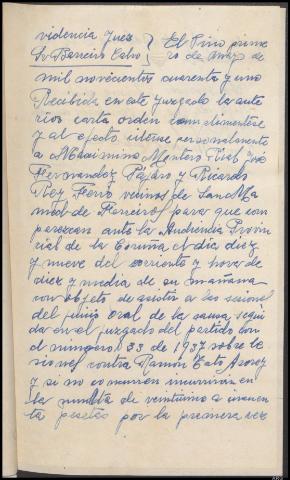 videncia Juez } El Pino prime
Sr Barreiro Calvo } ro de Mayo de
mil novecientos cuarenta y uno
Recibida en este juzgado la ante
rior carta orden cumplimentese
y al efecto citense personalmente
a Maximino Montero Rial José
Fernandez Pajaro y Ricardo
Rey Ferro vecinos de San Ma
med de Ferreiros para que com
parezcan ante la Audiencia Provin
cial de la Coruña el dia diez
y nueve del corriente y hora de
diez y media de su mañana
con objeto de asistir a las sesiones
del juicio oral de la causa segui
da en el juzgado del partido con
el numero 33 de 1937 sobre le
siones contra Ramón Tato
y si no concurren incurriran en
la multa de veinticinco a cincuen
ta pesetas por la primera vez